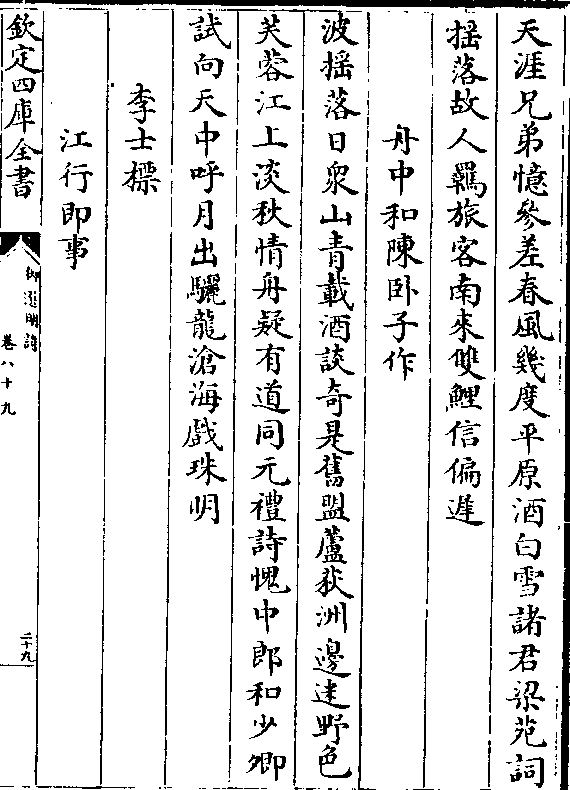 天涯兄弟憶參差春風幾度平原酒白雪諸君梁苑詞
揺落故人羈旅客南來雙鯉信偏遲
舟中和陳卧子作
波揺落日衆山青載酒談奇是舊盟蘆荻洲邊迷野色
芙蓉江上淡秋情舟疑有道同元禮詩愧中郎和少卿
試向天中呼月出驪龍滄海戲珠明
李士標
江行即事
欽定四庫全書
御選明詩
卷八十九
二十九